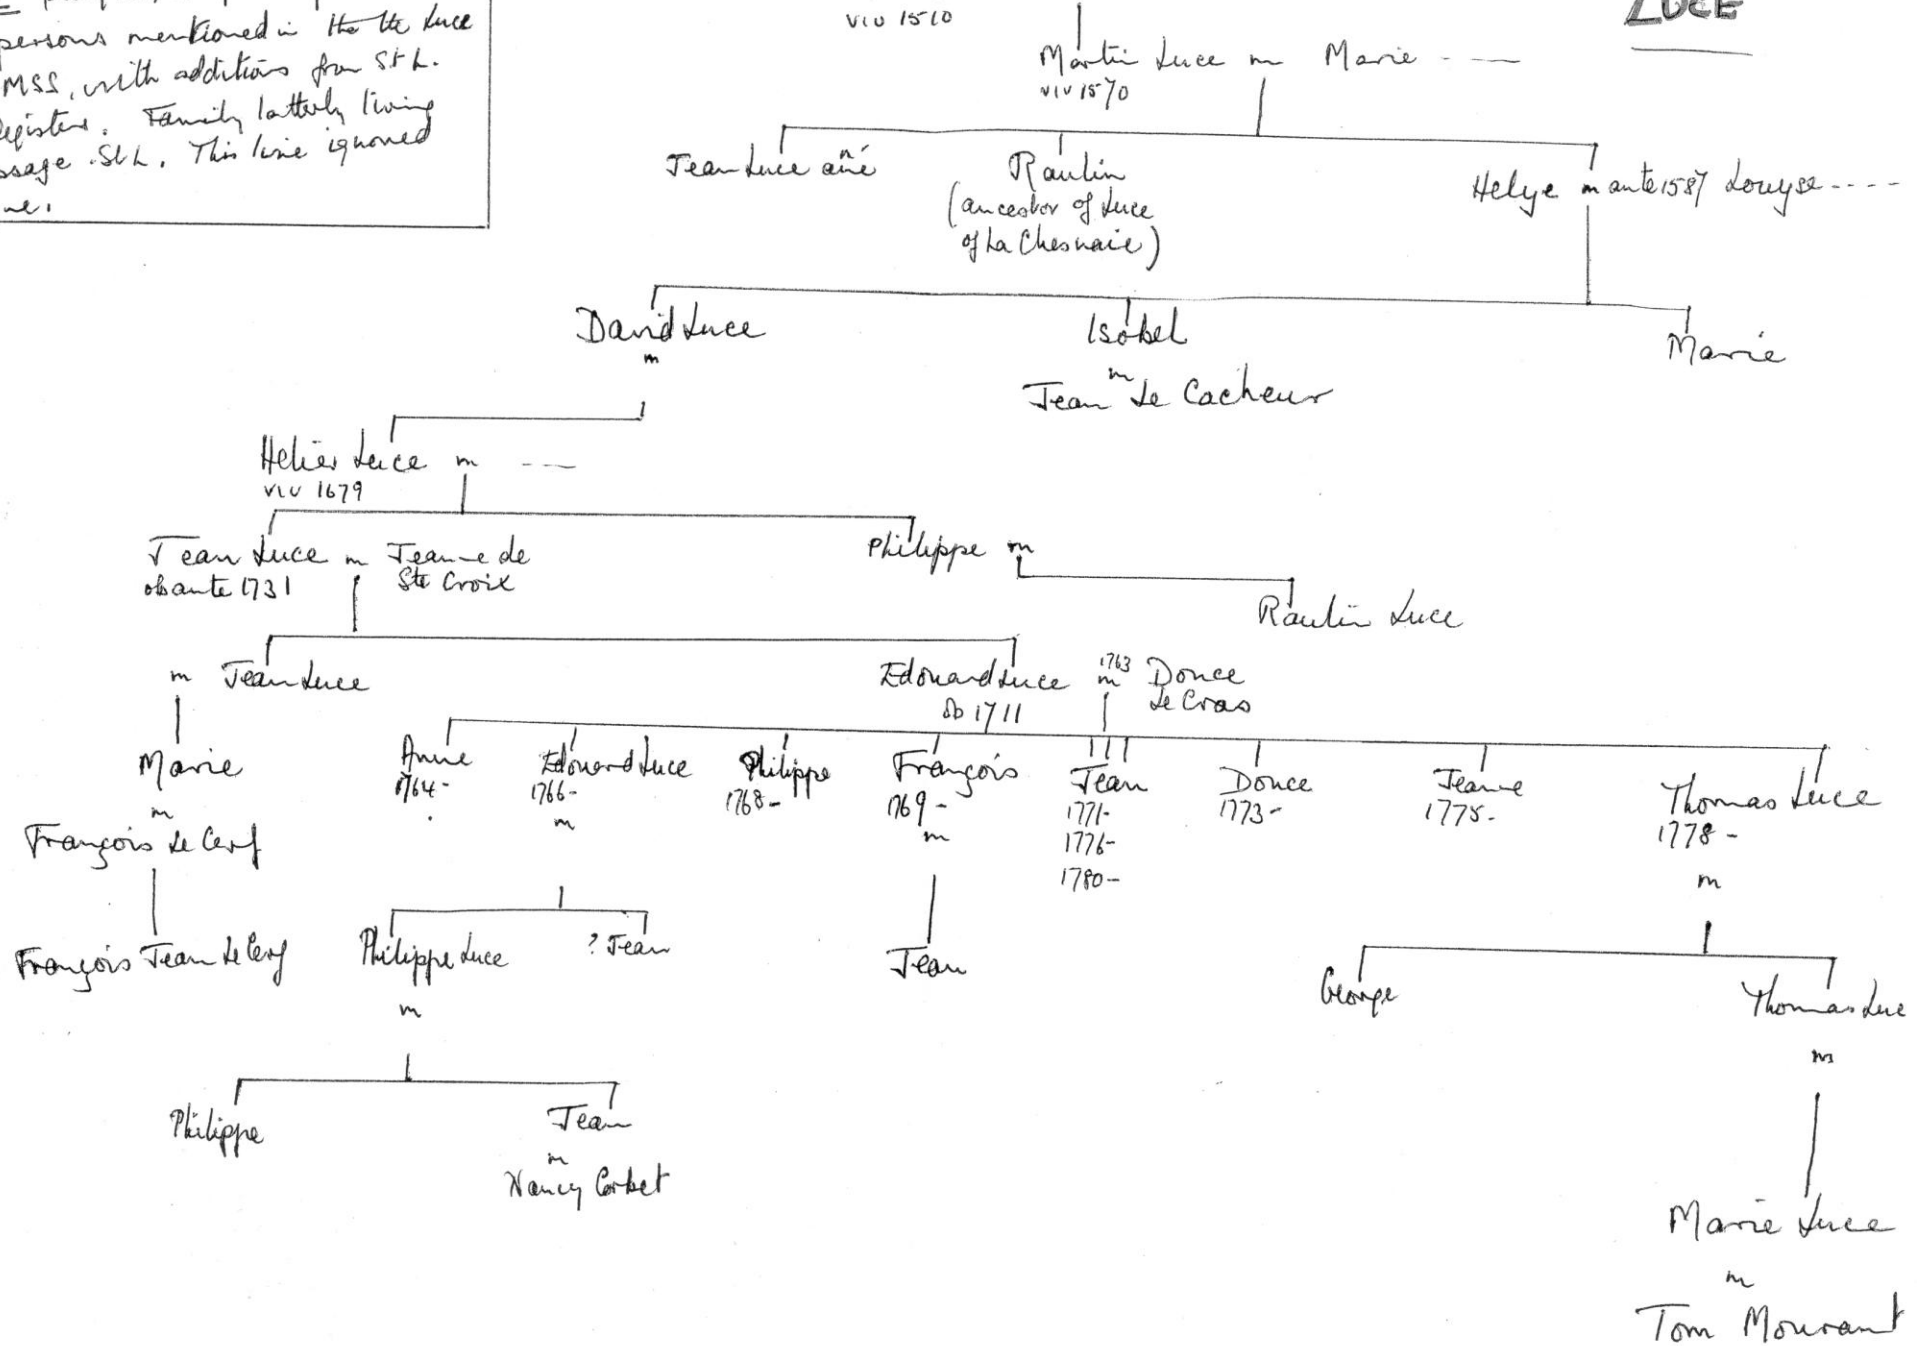 persons mentioned in the Luce
MSS, with additions from St L.
Family latterly living
St L. This line ignored
viv 1510
LUCE
Martin Luce m Marie - --
viv 1570
Jean Luce
Raulin
(ancestor of Luce
of La Chesnaie)
Helye m ante 1587 Louyse ----
David Luce
m
Isobel
m
Jean Le Cacheur
Marie
Helier Luce m - --
viv 1679
Jean Luce m Jeanne de
ob ante 1731 Ste Croix
Philippe m
Raulin Luce
m Jean Luce
Edouard Luce 1763 m Donce
ob 1711 Le Cras
Marie
m
François Le Cerf
François Jean Le Cerf
Anne
1764-
Edouard Luce
1766-
m
Philippe
1768-
François
1769-
m
Jean
1771-
1776-
1780-
Donce
1773-
Jeanne
1775-
Thomas Luce
1778-
m
Philippe Luce
m
? Jean
Jean
George
Thomas Luce
m
Philippe
Jean
m
Nancy Corbet
Marie Luce
m
Tom Mourant